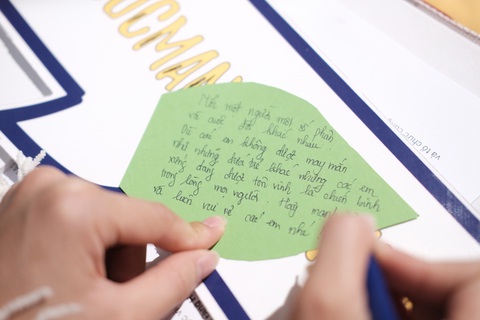 UCMAN
Mỗi một người một số phận
và cuộc đời khác nhau.
Dù các em không được may mắn
như những đứa trẻ khác nhưng các em
xứng đáng được tôn vinh là chiến binh
trong lòng mọi người. Hãy mạnh
và luôn vui vẻ các em nhé
và tổ chức